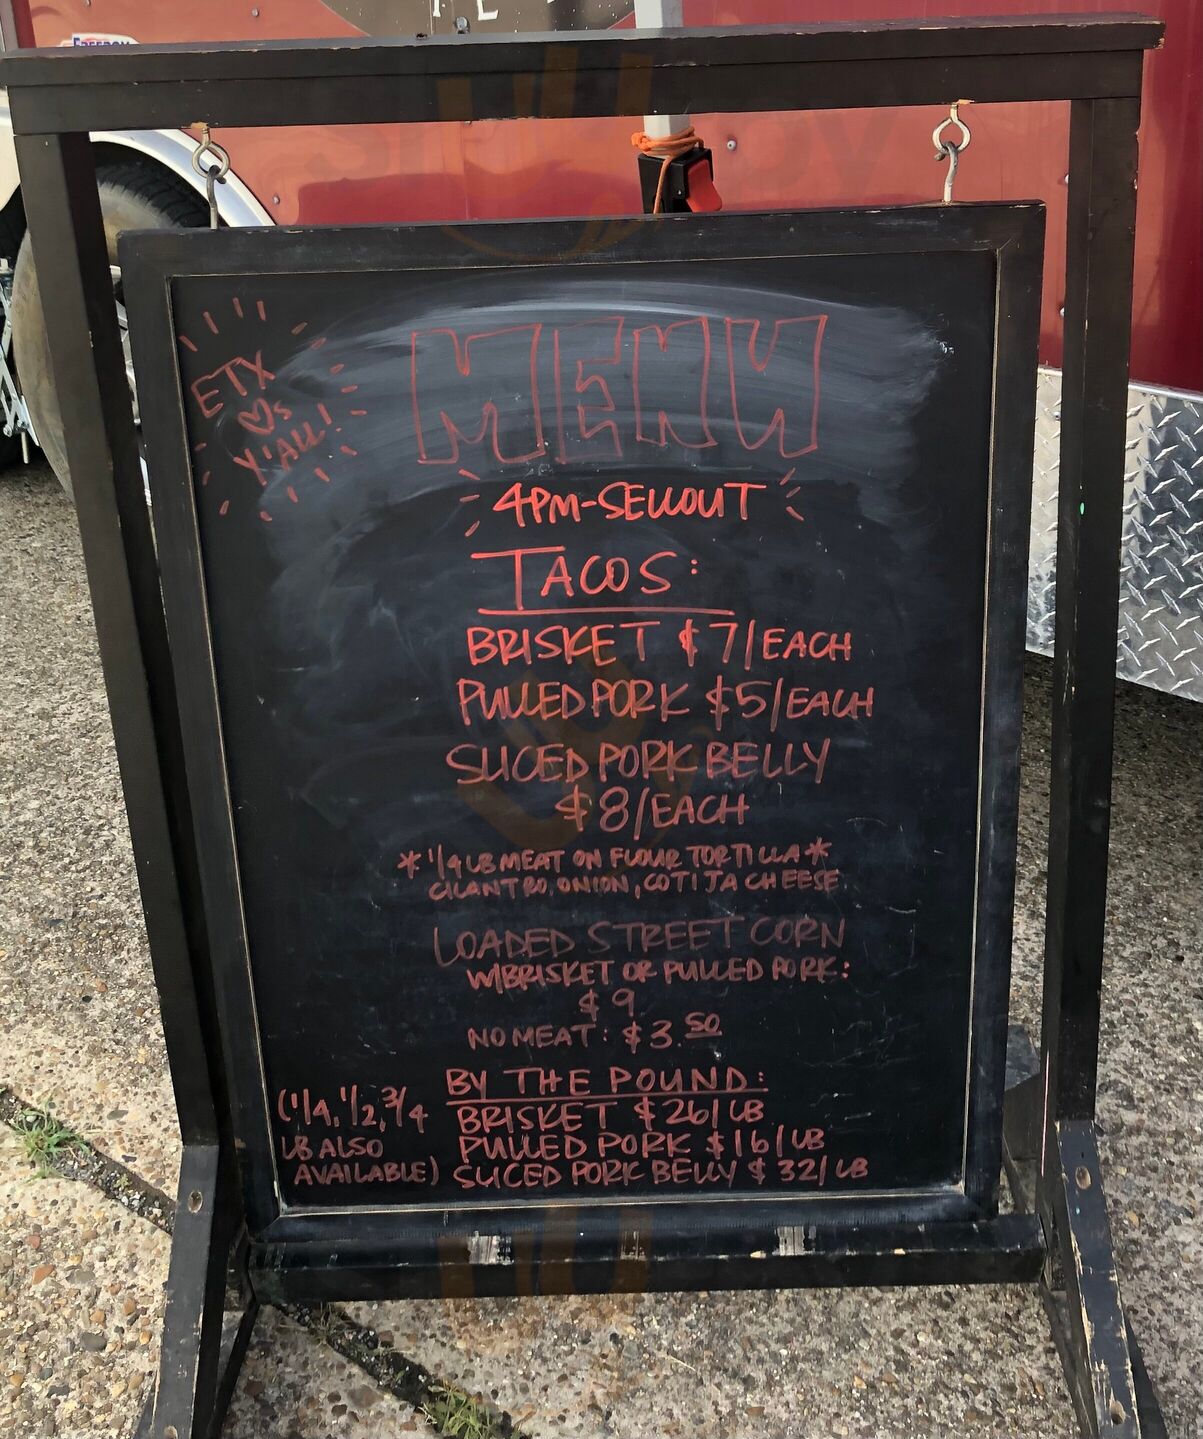 FREEDOM
ETX
♡s
Y'ALL!
MENU
4PM-SELLOUT
TACOS:
BRISKET $7/EACH
PULLED PORK $5/EACH
SLICED PORK BELLY
$8/EACH
*1/4 LB MEAT ON FLOUR TORTILLA*
CILANTRO, ONION, COTIJA CHEESE
LOADED STREET CORN
W/BRISKET OR PULLED PORK:
$9
NO MEAT: $3.50
BY THE POUND:
(1/4, 1/2, 3/4
LB ALSO
AVAILABLE)
BRISKET $26/LB
PULLED PORK $16/LB
SLICED PORK BELLY $32/LB